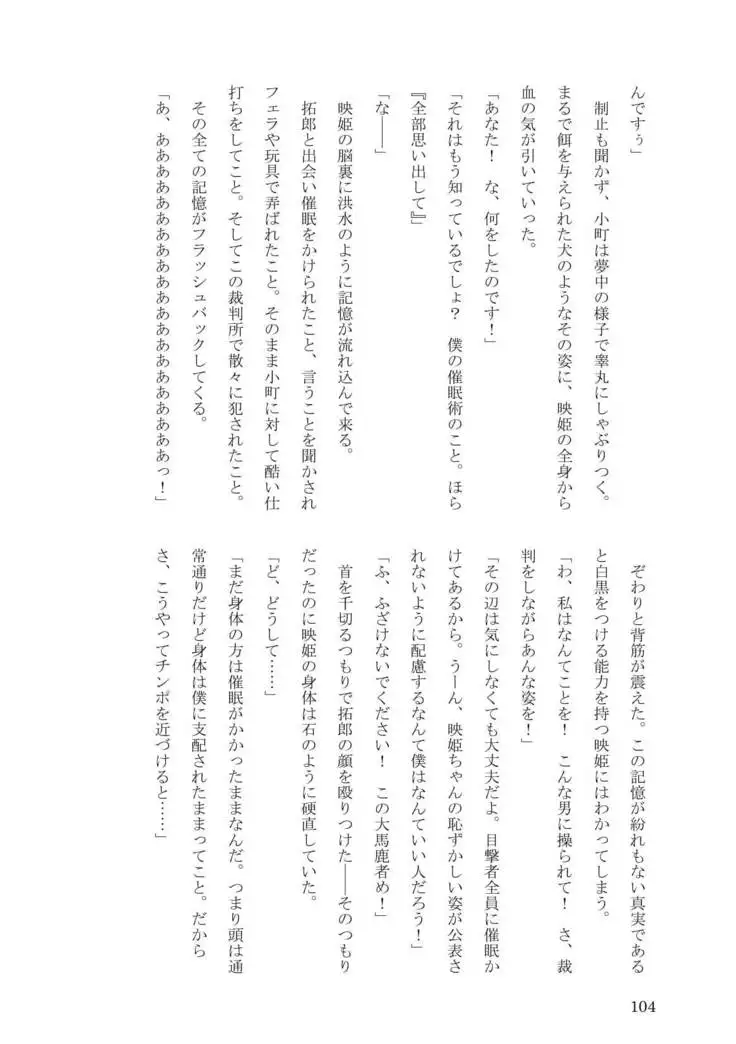 んですぅ」
　制止も聞かず、小町は夢中の様子で睾丸にしゃぶりつく。
まるで餌を与えられた犬のようなその姿に、映姫の全身から
血の気が引いていった。
「あなた！　な、何をしたのです！」
「それはもう知っているでしょ？　僕の催眠術のこと。ほら
『全部思い出して』」
「な――」
　映姫の脳裏に洪水のように記憶が流れ込んで来る。
　拓郎と出会い催眠をかけられたこと、言うことを聞かされ
フェラや玩具で弄ばれたこと。そのまま小町に対して酷い仕
打ちをしてこと。そしてこの裁判所で散々に犯されたこと。
　その全ての記憶がフラッシュバックしてくる。
「あ、ああああああああああああああああああああああっ！」
　ぞわりと背筋が震えた。この記憶が紛れもない真実である
と白黒をつける能力を持つ映姫にはわかってしまう。
「わ、私はなんてことを！　こんな男に操られて！　さ、裁
判をしながらあんな姿を！」
「その辺は気にしなくても大丈夫だよ。目撃者全員に催眠か
けてあるから。うーん、映姫ちゃんの恥ずかしい姿が公表さ
れないように配慮するなんて僕はなんていい人だろう！」
「ふ、ふざけないでください！　この大馬鹿者め！」
　首を千切るつもりで拓郎の顔を殴りつけた――そのつもり
だったのに映姫の身体は石のように硬直していた。
「ど、どうして……」
「まだ身体の方は催眠がかかったままなんだ。つまり頭は通
常通りだけど身体は僕に支配されたままってこと。だから
さ、こうやってチンポを近づけると……」
104